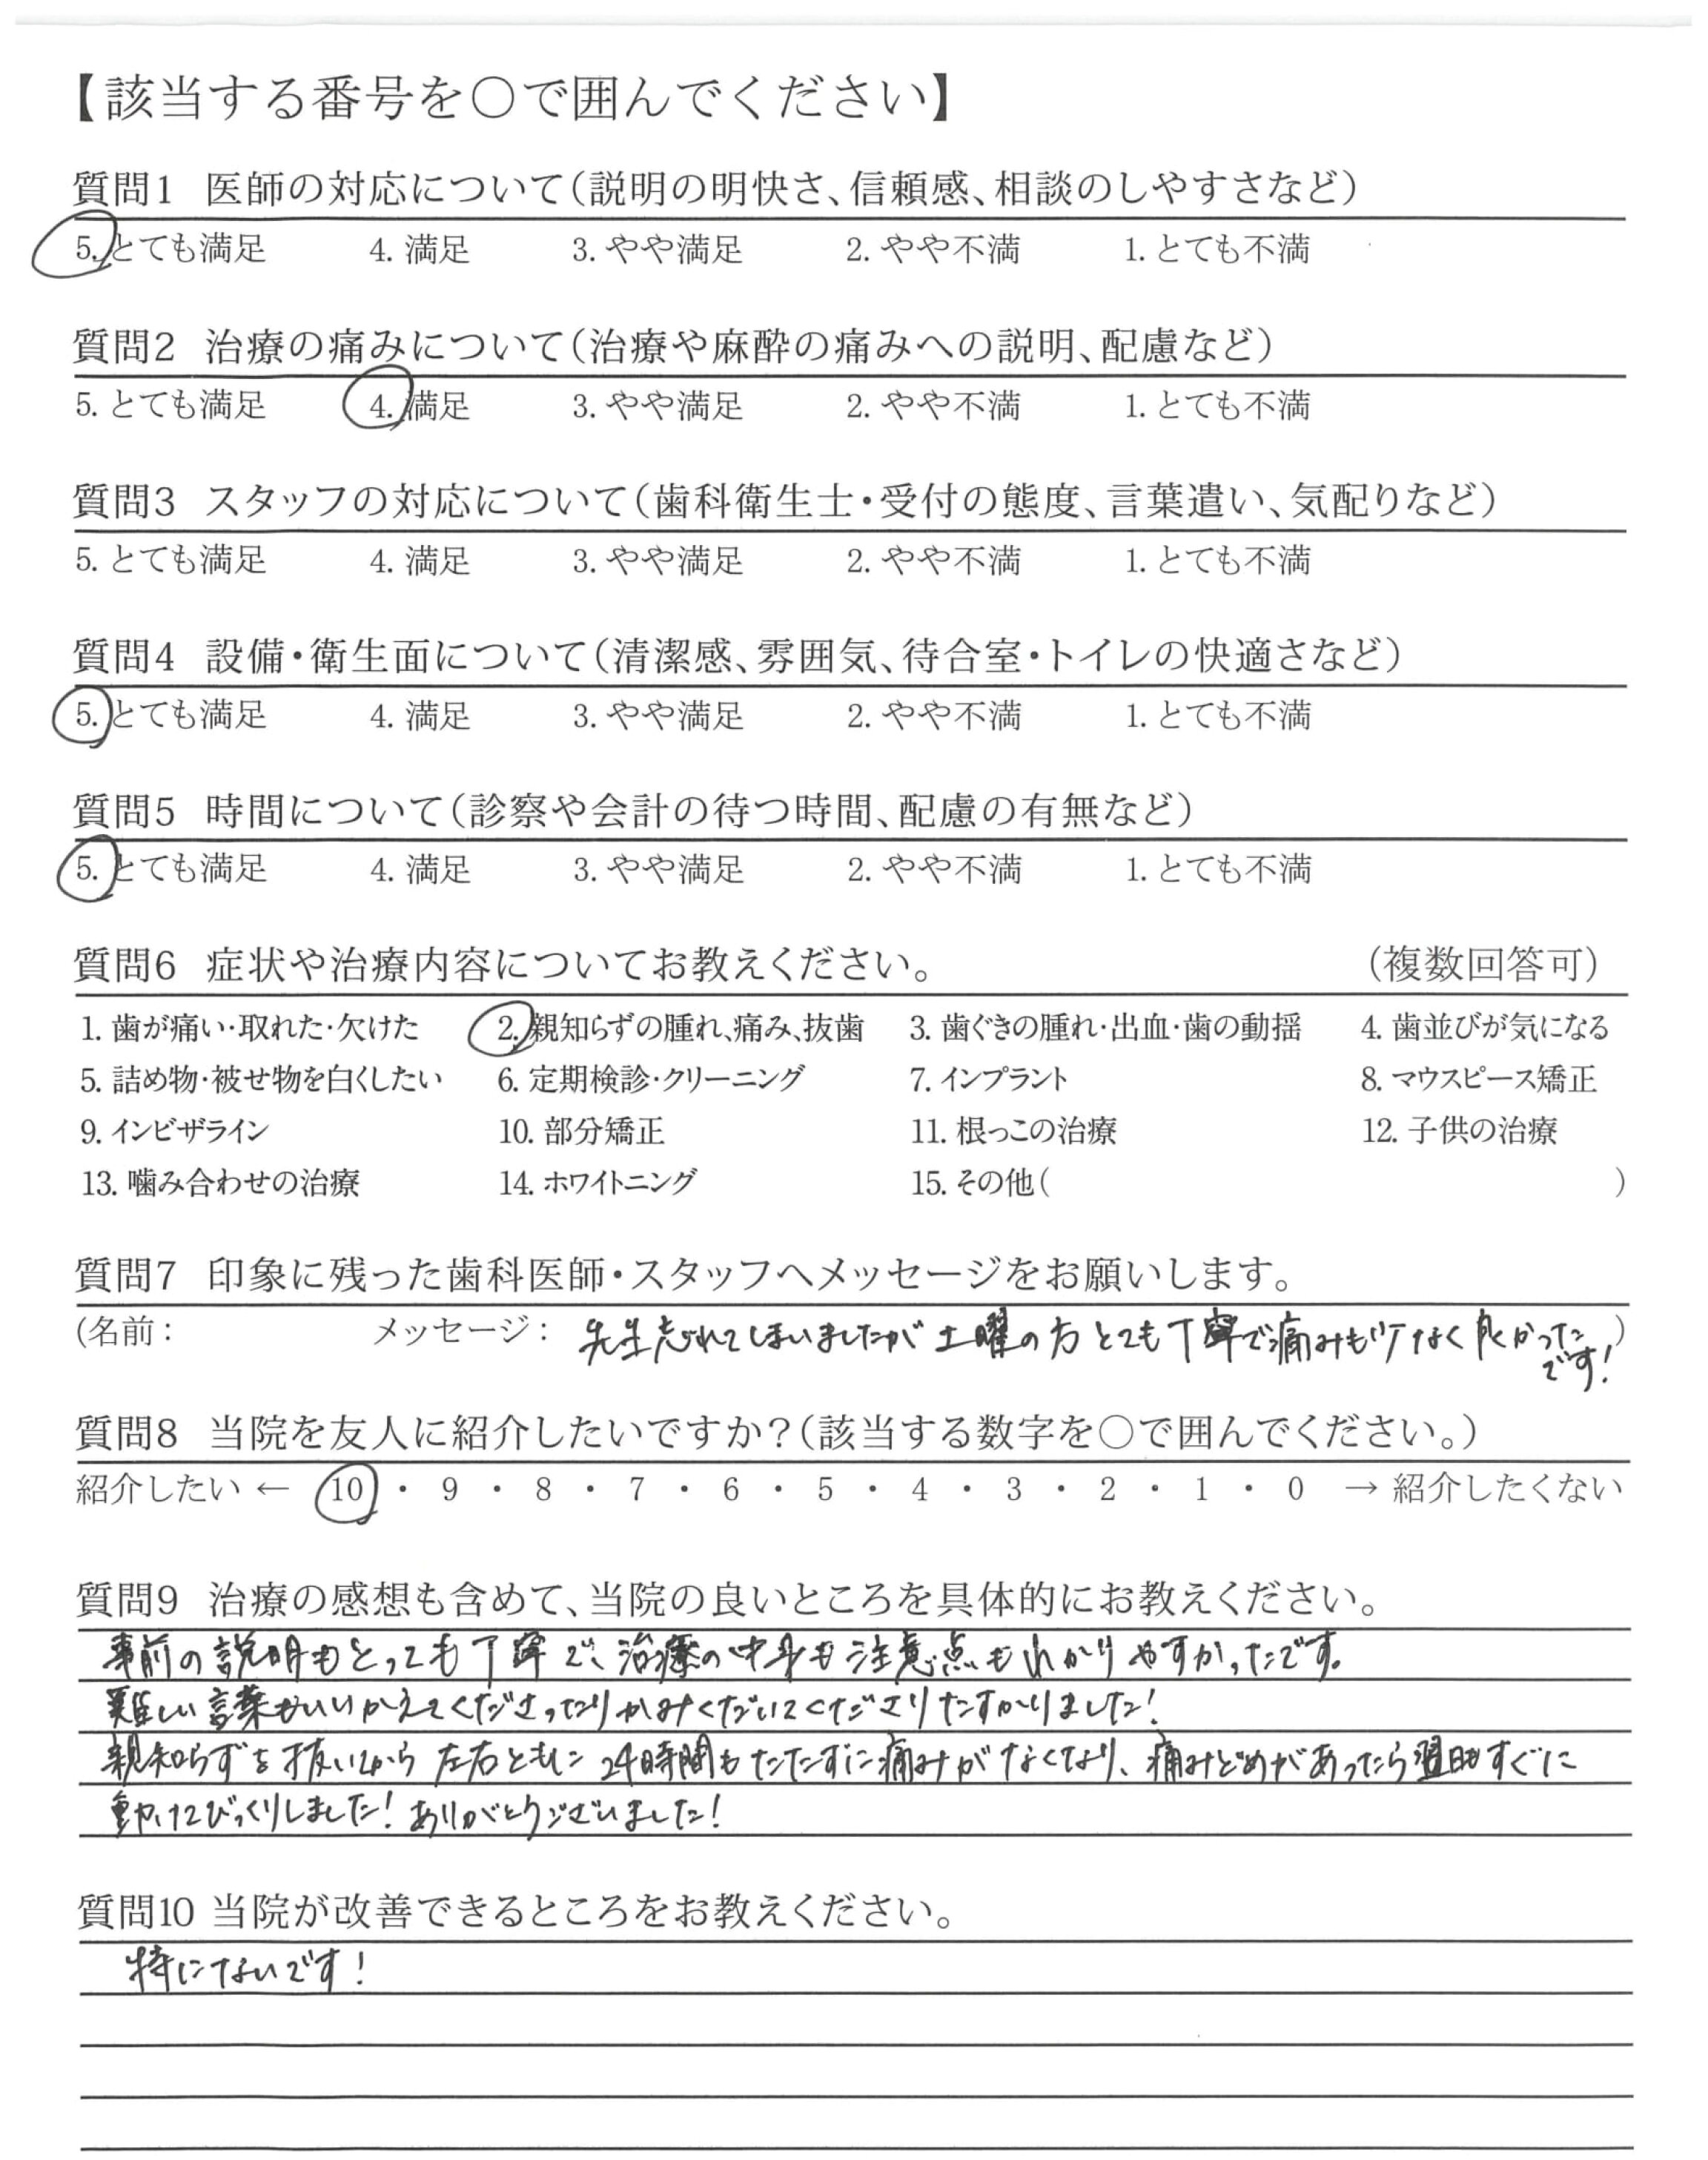 【該当する番号を〇で囲んでください】
質問1 医師の対応について(説明の明快さ、信頼感、相談のしやすさなど)
5. とても満足 4. 満足 3. やや満足 2. やや不満 1. とても不満
質問2 治療の痛みについて(治療や麻酔の痛みへの説明、配慮など)
5. とても満足 4. 満足 3. やや満足 2. やや不満 1. とても不満
質問3 スタッフの対応について(歯科衛生士・受付の態度、言葉遣い、気配りなど)
5. とても満足 4. 満足 3. やや満足 2. やや不満 1. とても不満
質問4 設備・衛生面について(清潔感、雰囲気、待合室・トイレの快適さなど)
5. とても満足 4. 満足 3. やや満足 2. やや不満 1. とても不満
質問5 時間について(診察や会計の待つ時間、配慮の有無など)
5. とても満足 4. 満足 3. やや満足 2. やや不満 1. とても不満
質問6 症状や治療内容についてお教えください。 (複数回答可)
1. 歯が痛い・取れた・欠けた 2. 親知らずの腫れ、痛み、抜歯 3. 歯ぐきの腫れ・出血・歯の動揺 4. 歯並びが気になる
5. 詰め物・被せ物を白くしたい 6. 定期検診・クリーニング 7. インプラント 8. マウスピース矯正
9. インビザライン 10. 部分矯正 11. 根っこの治療 12. 子供の治療
13. 噛み合わせの治療 14. ホワイトニング 15. その他( )
質問7 印象に残った歯科医師・スタッフへメッセージをお願いします。
(名前: メッセージ: 先生忘れてしまいましたが 土曜の方 とても丁寧で痛みも少なく良かった )
です!
質問8 当院を友人に紹介したいですか?(該当する数字を〇で囲んでください。)
紹介したい ← 10 ・ 9 ・ 8 ・ 7 ・ 6 ・ 5 ・ 4 ・ 3 ・ 2 ・ 1 ・ 0 → 紹介したくない
質問9 治療の感想も含めて、当院の良いところを具体的にお教えください。
事前の説明もとっても丁寧で、治療の中身も注意点もわかりやすかったです。
難しい言葉もいいかえてくださったりかみくだいてくださりたすかりました!
親知らずを抜いてから 左右ともに 24時間もたたずに痛みがなくなり、痛みどめがあったら翌日もすぐに
動けてびっくりしました! ありがとうございました!
質問10 当院が改善できるところをお教えください。
特にないです!